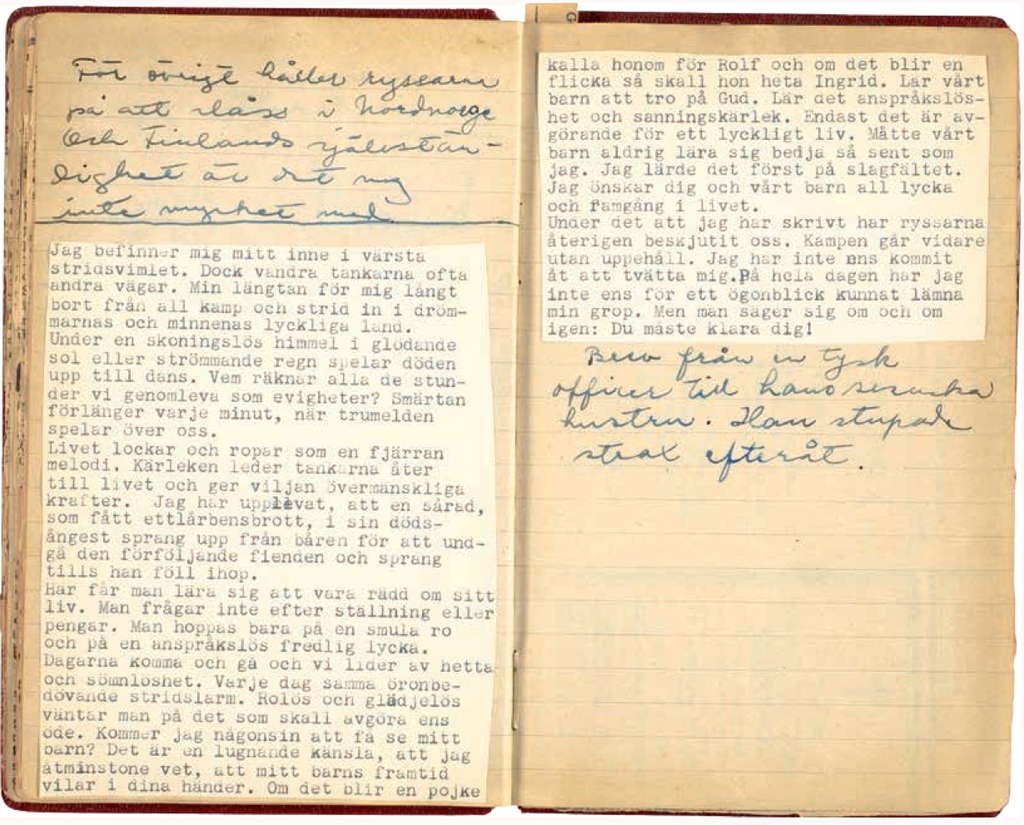 För övrigt håller ryssarna
på att slåss i Nordnorge
Och Finlands självstän-
dighet är det nog
inte mycket med
Jag befinner mig mitt inne i värsta
stridsvimlet. Dock vandra tankarna ofta
andra vägar. Min längtan för mig långt
bort från all kamp och strid in i dröm-
marnas och minnenas lyckliga land.
Under en skoningslös himmel i glödande
sol eller strömmande regn spelar döden
upp till dans. Vem räknar alla de stun-
der vi genomleva som evigheter? Smärtan
förlänger varje minut, när trumelden
spelar över oss.
Livet lockar och ropar som en fjärran
melodi. Kärleken leder tankarna åter
till livet och ger viljan övermänskliga
krafter. Jag har upplevat, att en sårad,
som fått ettlårbensbrott, i sin döds-
ångest sprang upp från båren för att und-
gå den förföljande fienden och sprang
tills han föll ihop.
Här får man lära sig att vara rädd om sitt
liv. Man frågar inte efter ställning eller
pengar. Man hoppas bara på en smula ro
och på en anspråkslös fredlig lycka.
Dagarna komma och gå och vi lider av hetta
och sömnlöshet. Varje dag samma öronbe-
dövande stridslarm. Rolös och glädjelös
väntar man på det som skall avgöra ens
öde. Kommer jag någonsin att få se mitt
barn? Det är en lugnande känsla, att jag
åtminstone vet, att mitt barns framtid
vilar i dina händer. Om det blir en pojke
G
kalla honom för Rolf och om det blir en
flicka så skall hon heta Ingrid. Lär vårt
barn att tro på Gud. Lär det anspråkslös-
het och sanningskärlek. Endast det är av-
görande för ett lyckligt liv. Måtte vårt
barn aldrig lära sig bedja så sent som
jag. Jag lärde det först på slagfältet.
Jag önskar dig och vårt barn all lycka
och framgång i livet.
Under det att jag har skrivt har ryssarna
återigen beskjutit oss. Kampen går vidare
utan uppehåll. Jag har inte ens kommit
åt att tvätta mig.På hela dagen har jag
inte ens för ett ögonblick kunnat lämna
min grop. Men man säger sig om och om
igen: Du måste klara dig!
Brev från en tysk
officer till hans svenska
hustru. Han stupade
strax efteråt.